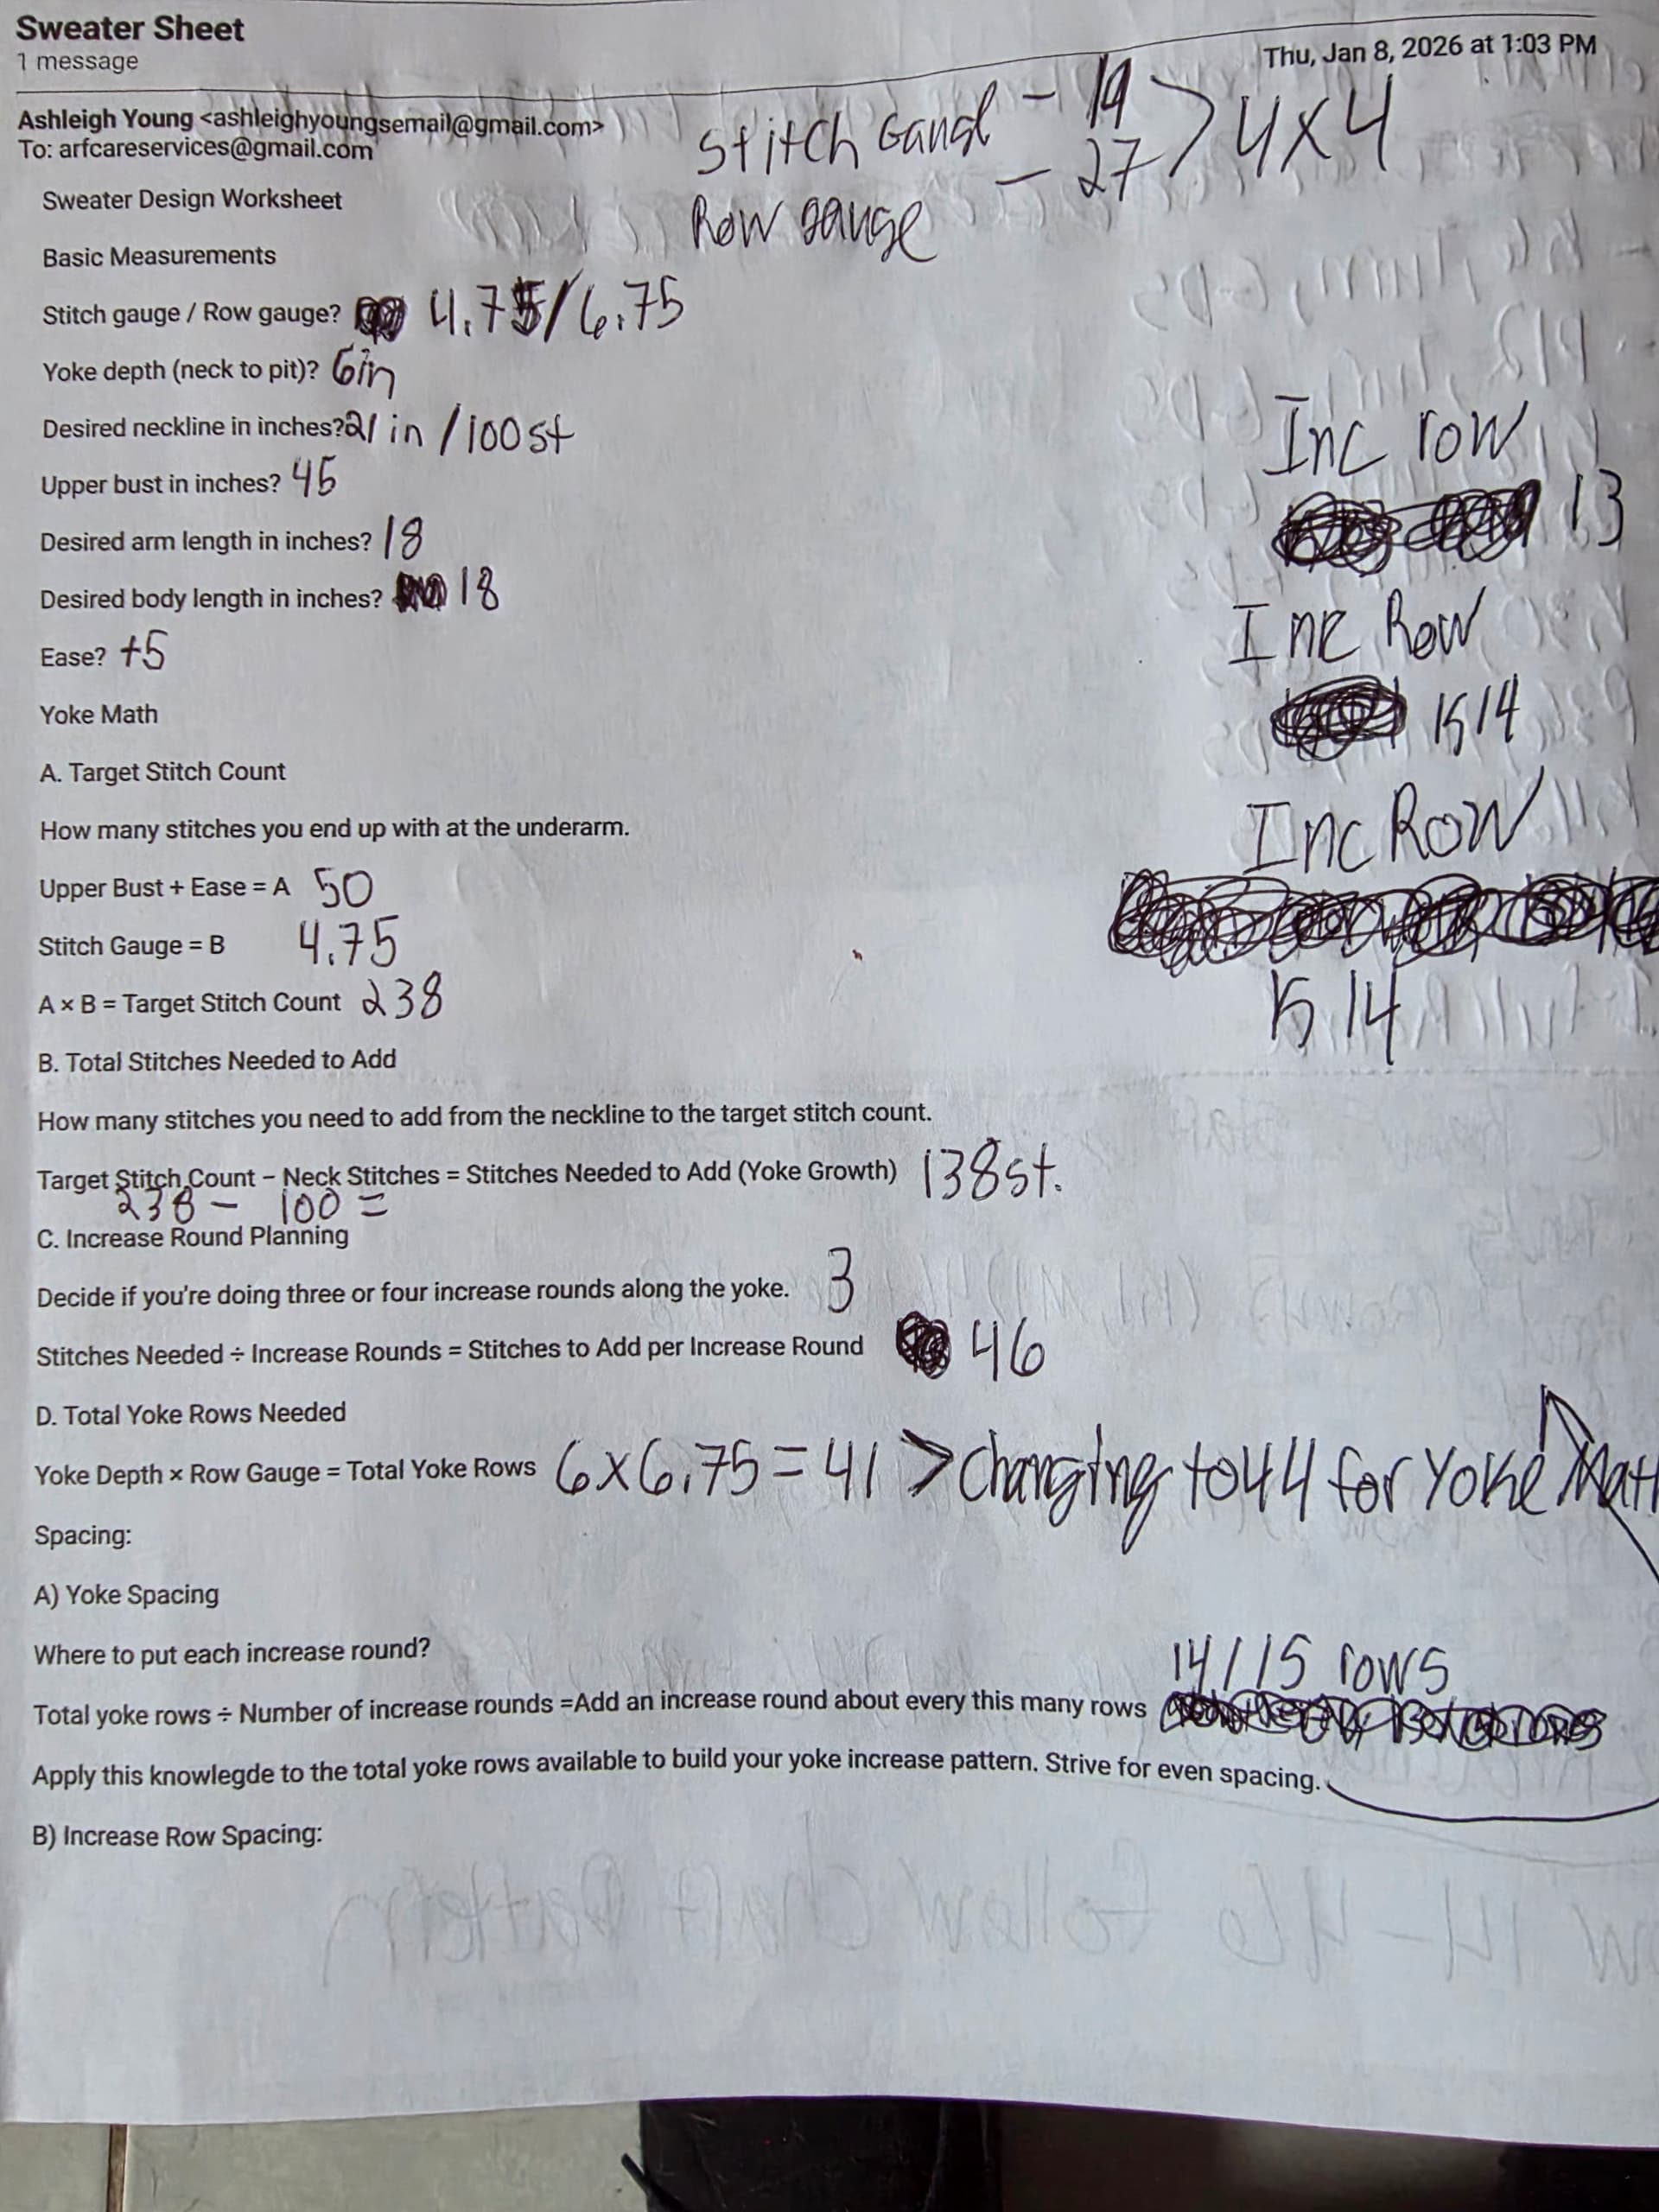 Sweater Sheet
1 message
Thu, Jan 8, 2026 at 1:03 PM
Ashleigh Young <ashleighyoungsemail@gmail.com>
To: arfcareservices@gmail.com
Stitch Gaugl - 19
Row gauge - 27 > 4x4
Sweater Design Worksheet
Basic Measurements
Stitch gauge / Row gauge? 4.75/6.75
Yoke depth (neck to pit)? 6in
Desired neckline in inches? 21 in / 100st
Upper bust in inches? 45
Desired arm length in inches? 18
Desired body length in inches? 18
Ease? +5
Inc row
13
Inc Row
K14
Inc Row
K14
Yoke Math
A. Target Stitch Count
How many stitches you end up with at the underarm.
Upper Bust + Ease = A 50
Stitch Gauge = B 4.75
A × B = Target Stitch Count 238
B. Total Stitches Needed to Add
How many stitches you need to add from the neckline to the target stitch count.
Target Stitch Count – Neck Stitches = Stitches Needed to Add (Yoke Growth) 138st.
238 - 100 =
C. Increase Round Planning
Decide if you're doing three or four increase rounds along the yoke. 3
Stitches Needed ÷ Increase Rounds = Stitches to Add per Increase Round 46
D. Total Yoke Rows Needed
Yoke Depth × Row Gauge = Total Yoke Rows 6x6.75=41 > Changing to 44 for Yoke Math
Spacing:
A) Yoke Spacing
Where to put each increase round?
Total yoke rows ÷ Number of increase rounds =Add an increase round about every this many rows 14/15 rows
Apply this knowlegde to the total yoke rows available to build your yoke increase pattern. Strive for even spacing.
B) Increase Row Spacing: